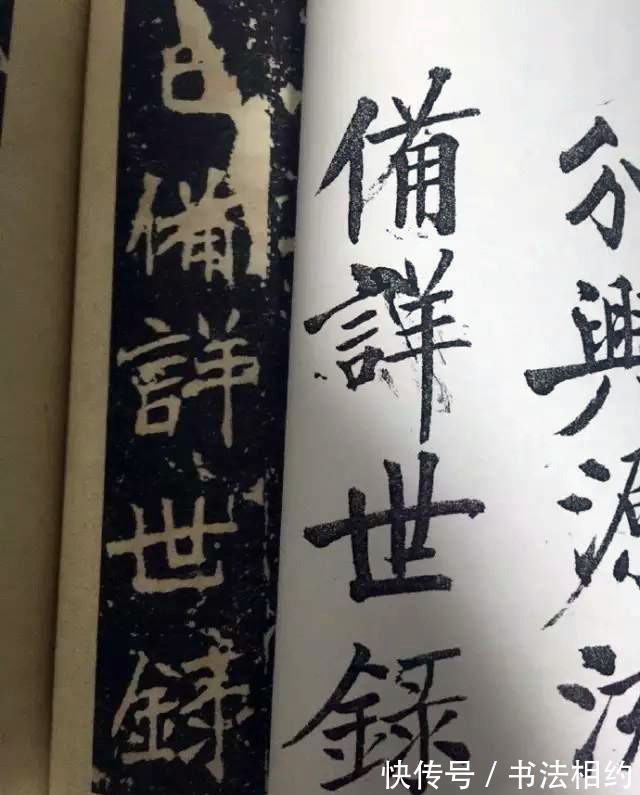 分興源
備詳世錄
備詳世錄
快传号 / 书法相约